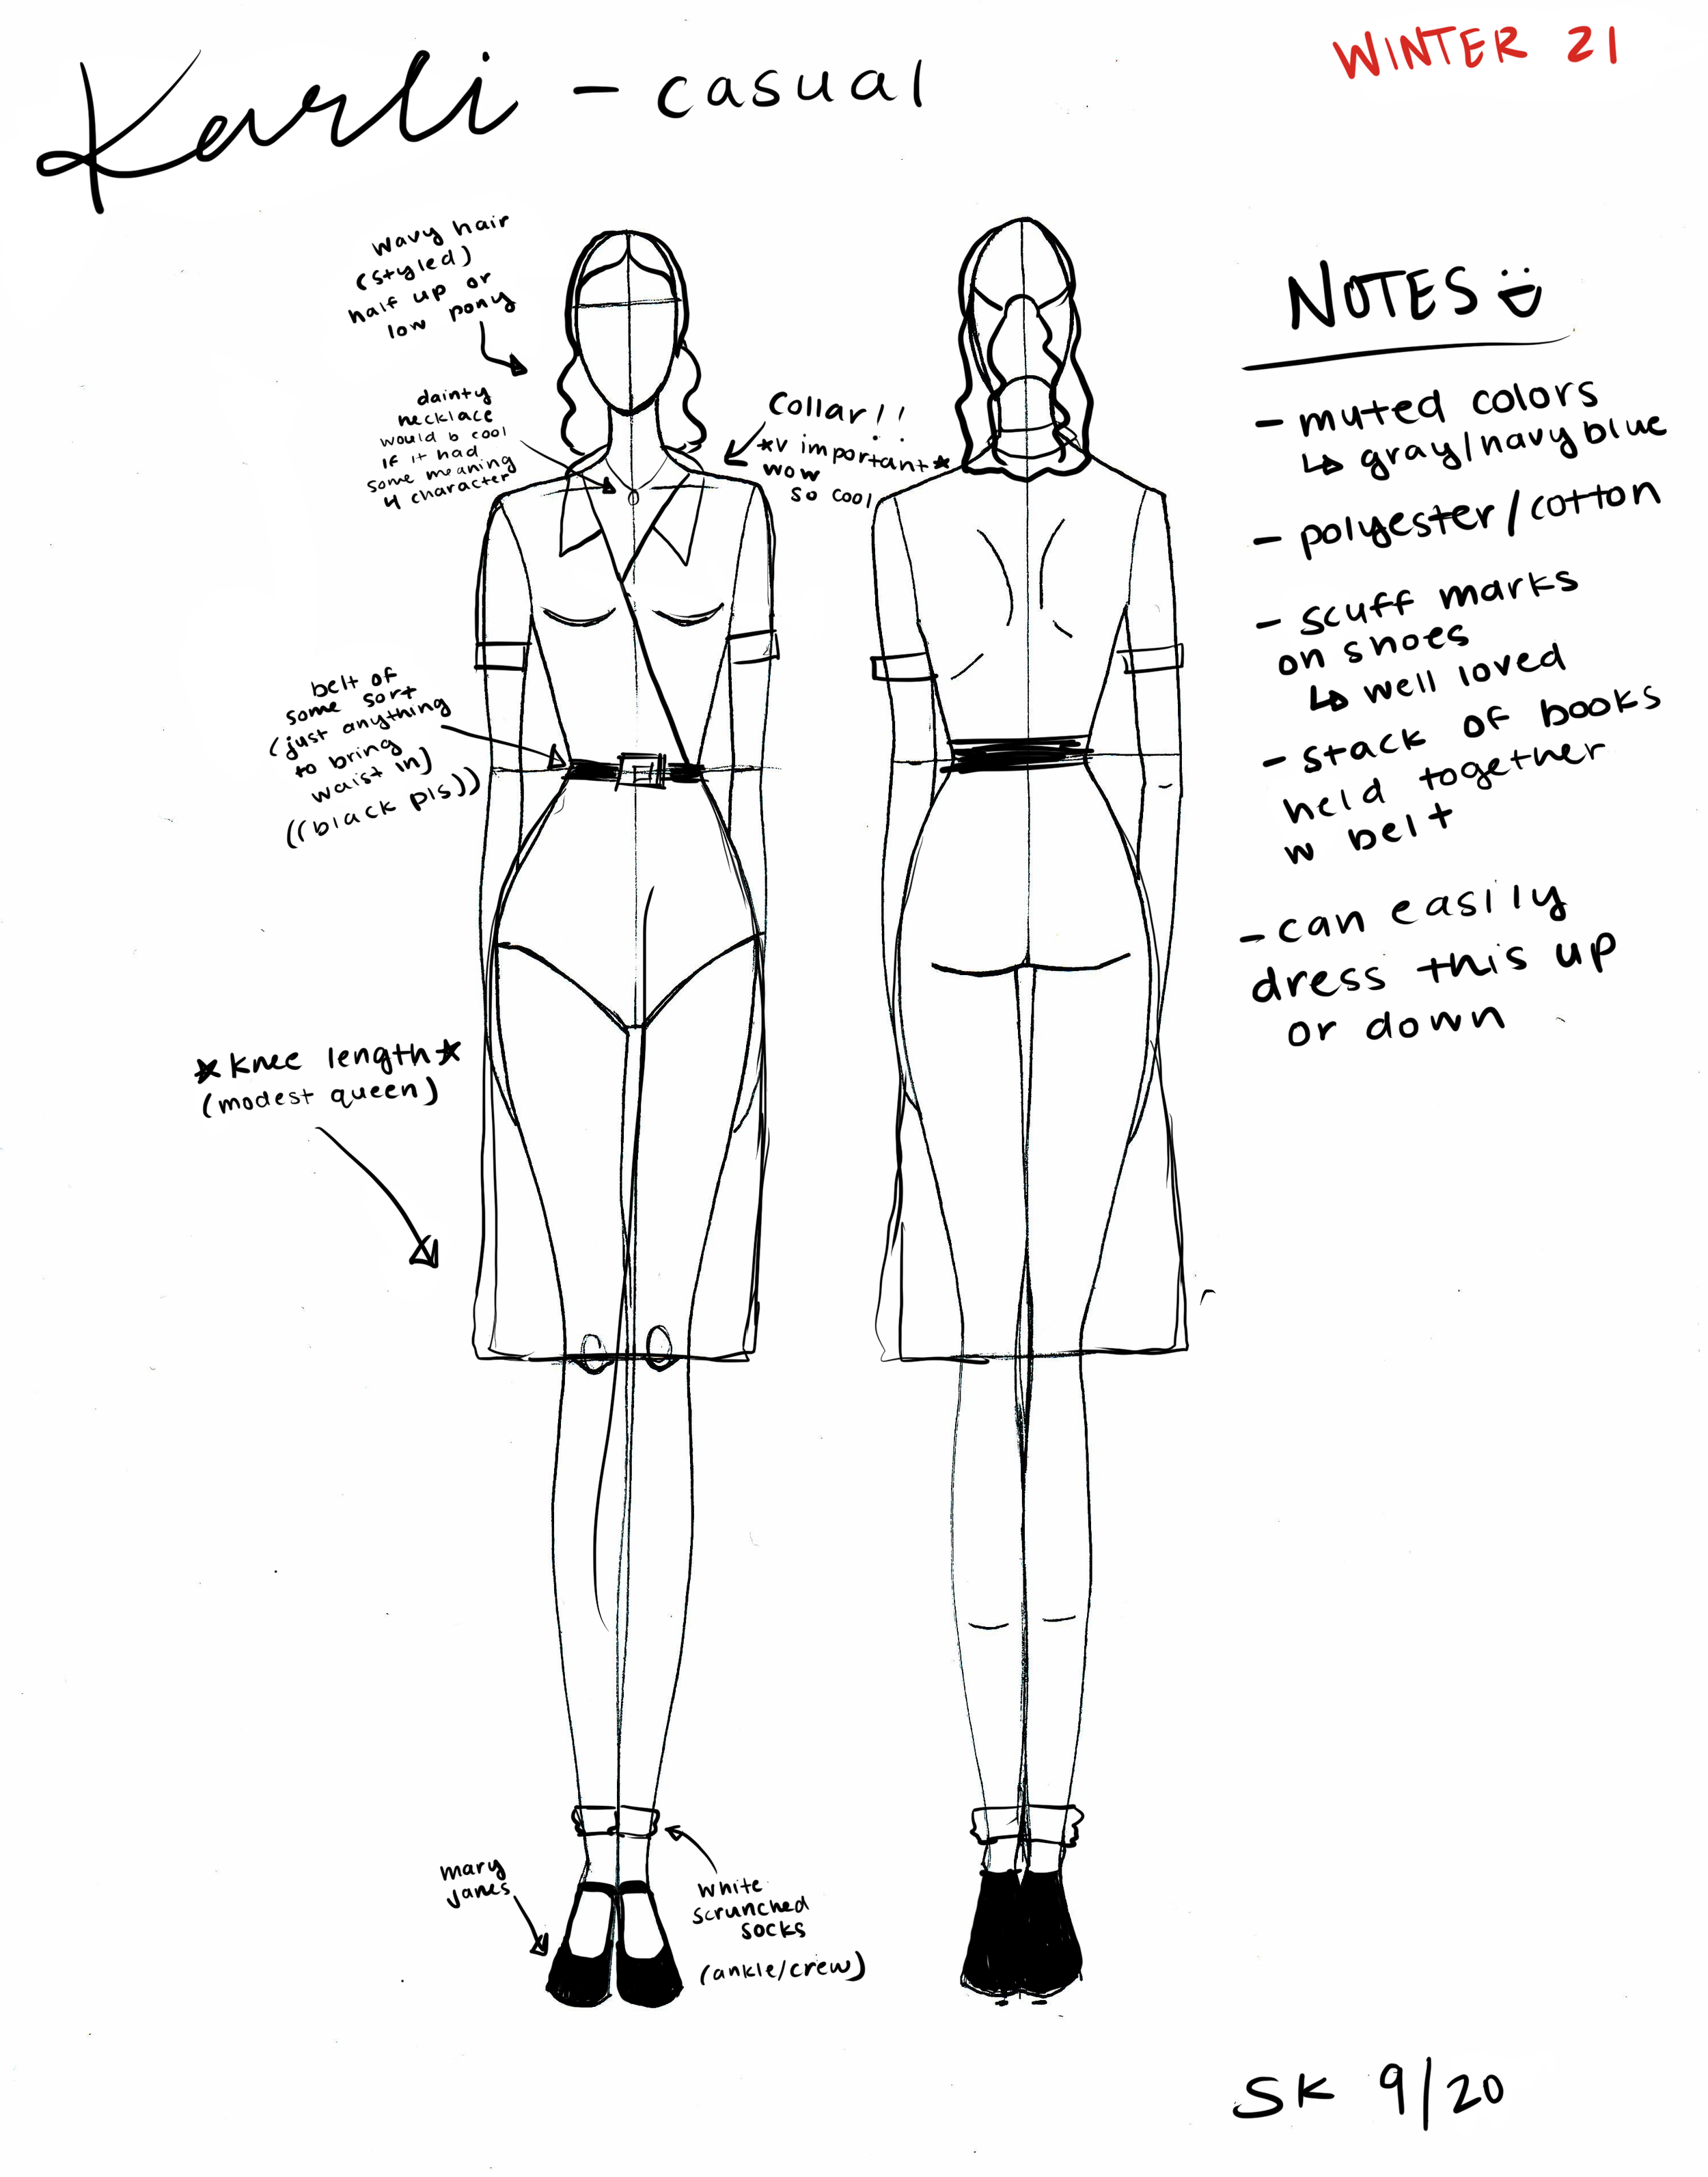 Karli - casual
WINTER 21
wavy hair
(styled)
half up or
low pony
dainty
necklace
would b cool
if it had
some meaning
4 character
Collar!!
*v important*
wow
so cool
belt of
some sort
(just anything
to bring
waist in)
((black pls))
*knee length*
(modest queen)
mary
janes
white
scrunched
socks
(ankle/crew)
NOTES
- muted colors
↳ gray/navy blue
- polyester/cotton
- scuff marks
on shoes
↳ well loved
- stack of books
held together
w belt
- can easily
dress this up
or down
SK 9/20